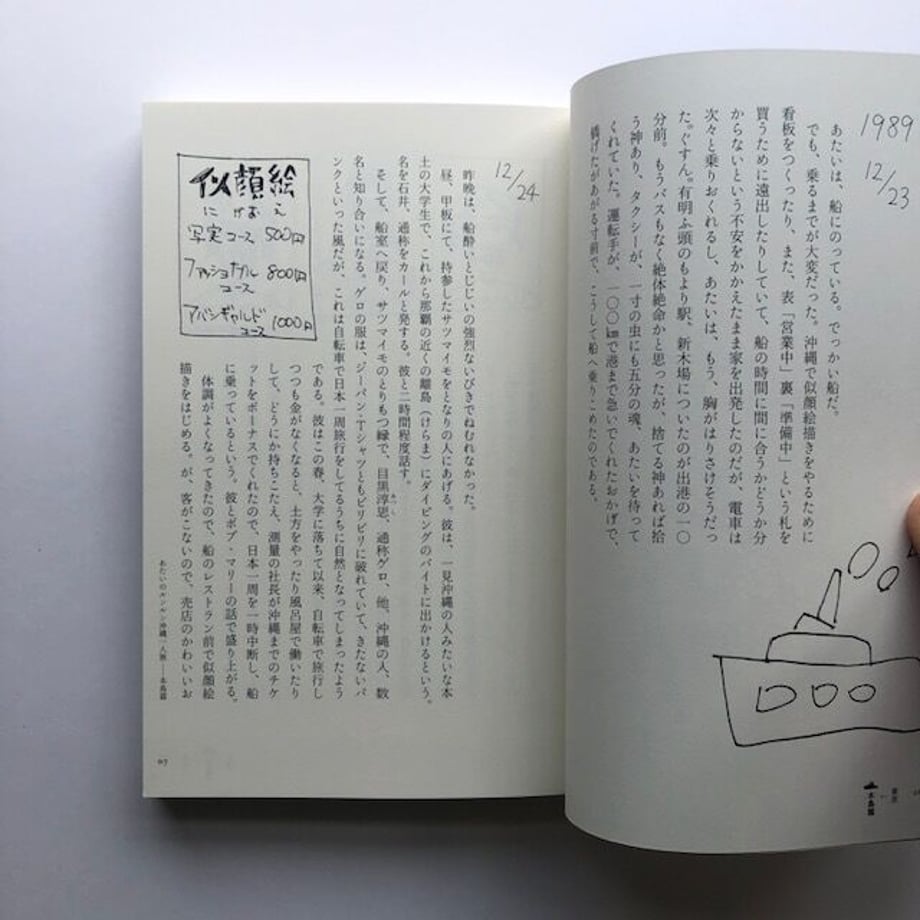 1989
12/23
あたいは、船にのっている。でっかい船だ。
でも、乗るまでが大変だった。沖縄で似顔絵描きをやるために
看板をつくったり、また、表「営業中」裏「準備中」という札を
買うために遠出したりしていて、船の時間に間に合うかどうか分
からないという不安をかかえたまま家を出発したのだが、電車は
次々と乗りおくれるし、あたいは、もう、胸がはりさけそうだっ
た。ぐすん。有明ふ頭のもより駅、新木場についたのが出港の一〇
分前。もうバスもなく絶体絶命かと思ったが、捨てる神あれば拾
う神あり、タクシーが、一寸の虫にも五分の魂、あたいを待って
くれていた。運転手が、一〇〇㎞で港まで急いでくれたおかげで、
橋げたがあがる寸前で、こうして船へ乗りこめたのである。
12/24
昨晩は、船酔いとじじいの強烈ないびきでねむれなかった。
昼、甲板にて、持参したサツマイモをとなりの人にあげる。彼は、一見沖縄の人みたいな本
土の大学生で、これから那覇の近くの離島(けらま)にダイビングのバイトに出かけるという。
名を石井、通称をカールと発する。彼と二時間程度話す。
そして、船室へ戻り、サツマイモのとりもつ縁で、目黒淳思、通称ゲロ、他、沖縄の人、数
名と知り合いになる。ゲロの服は、ジーパン・Tシャツともビリビリに破れていて、きたないパ
ンクといった風だが、これは自転車で日本一周旅行をしてるうちに自然となってしまったよう
である。彼はこの春、大学に落ちて以来、自転車で旅行し
つつも金がなくなると、土方をやったり風呂屋で働いたり
して、どうにか持ちこたえ、測量の社長が沖縄までのチケ
ットをボーナスでくれたので、日本一周を一時中断し、船
に乗っているという。彼とボブ・マリーの話で盛り上がる。
体調がよくなってきたので、船のレストラン前で似顔絵
描きをはじめる。が、客がこないので、売店のかわいいお
似顔絵
にがおえ
写実コース 500円
ファッショナブル 800円
コース
アバンギャルド
コース 1000円
あたいのルンルン沖縄一人旅——本島篇
07
本島篇